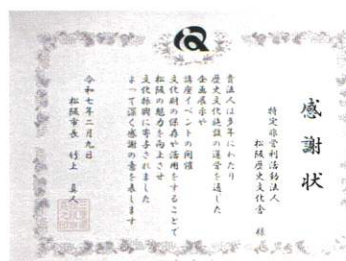 感謝状
特定非営利活動法人
松阪歴史文化舎 様
貴法人は多年にわたり
歴史文化施設の運営を通した
企画展示や
講座イベントの開催
文化財の保存や活用をすることで
松阪の魅力を向上させ
文化振興に寄与されました
よって深く感謝の意を表します
令和七年二月九日
松阪市長 竹上真人